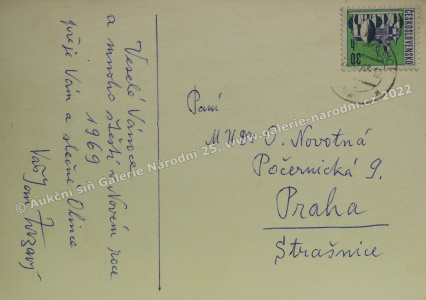 Veselé Vánoce
a mnoho štěstí v Novém roce
1969
přeje Vám a slečně Olince
Váš Jan Zrzavý
ČESKOSLOVENSKO
30 h
Paní
MUDr O. Novotná
Počernická 9.
Praha
Strašnice
© Aukční síň Galerie Národní 25, www.galerie-narodni.cz 2022